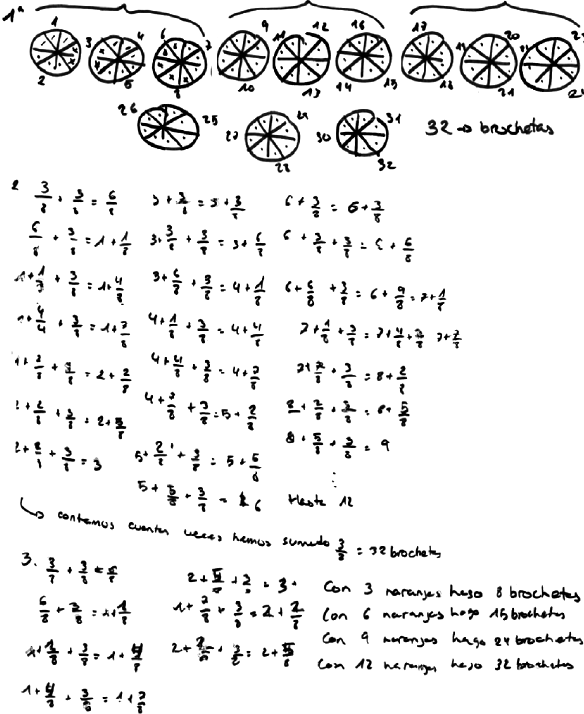 1ª
1 2 3 4 5 6 7 8 9 10 11 12 13 14 15 16 17 18 20 21
26 25 22 30 31 32
32 → brochetas
2 3/8 + 3/8 = 6/8   3 + 3/8 = 3 + 3/8   6 + 3/8 = 6 + 3/8
6/8 + 3/8 = 1 + 1/8   3 + 3/8 + 3/8 = 3 + 6/8   6 + 3/8 + 3/8 = 6 + 6/8
+ 3/8 = 1 + 4/8   3 + 6/8 + 3/8 = 4 + 1/8   6 + 6/8 + 3/8 = 6 + 9/8 = 7 + 1/8
+ 3/8 = 1 + 7/8   4 + 1/8 + 3/8 = 4 + 4/8   7 + 1/8 + 3/8 = 7 + 4/8
+ 3/8 = 2 + 2/8   4 + 4/8 + 3/8 = 4 + 7/8   7 + 7/8 + 3/8 = 8 + 2/8
+ 2/8 + 3/8 = 2 + 5/8   4 + 7/8 + 3/8 = 5 + 2/8   8 + 2/8 + 3/8 = 8 + 5/8
+ 3/8 = 3   5 + 2/8 + 3/8 = 5 + 5/8   8 + 5/8 + 3/8 = 9
5 + 5/8 + 3/8 = 6   Hasta 12
↳ contamos cuantas veces hemos sumado 3/8 = 32 brochetas
3. + 3/8   + 3/8 = 3   Con 3 naranjas hago 8 brochetas
6/8 + 3/8 = 1 + 1/8   1 + 7/8 + 3/8 = 2 + 2/8   Con 6 naranjas hago 15 brochetas
+ 3/8 = 1 + 4/8   2 + 2/8 + 3/8 = 2 + 5/8   Con 9 naranjas hago 24 brochetas
1 + 4/8 + 3/8 = 1 + 7/8   Con 12 naranjas hago 32 brochetas